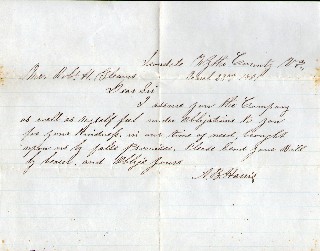 County
Mr. Robt. H.
Dear Sir
I assure you the Company
as well as myself feel under obligations to you
for your kindness, in our time of need, brought
upon us by false Promises. Please send your Bill
by bearer, and oblige yours
A. B. Harris